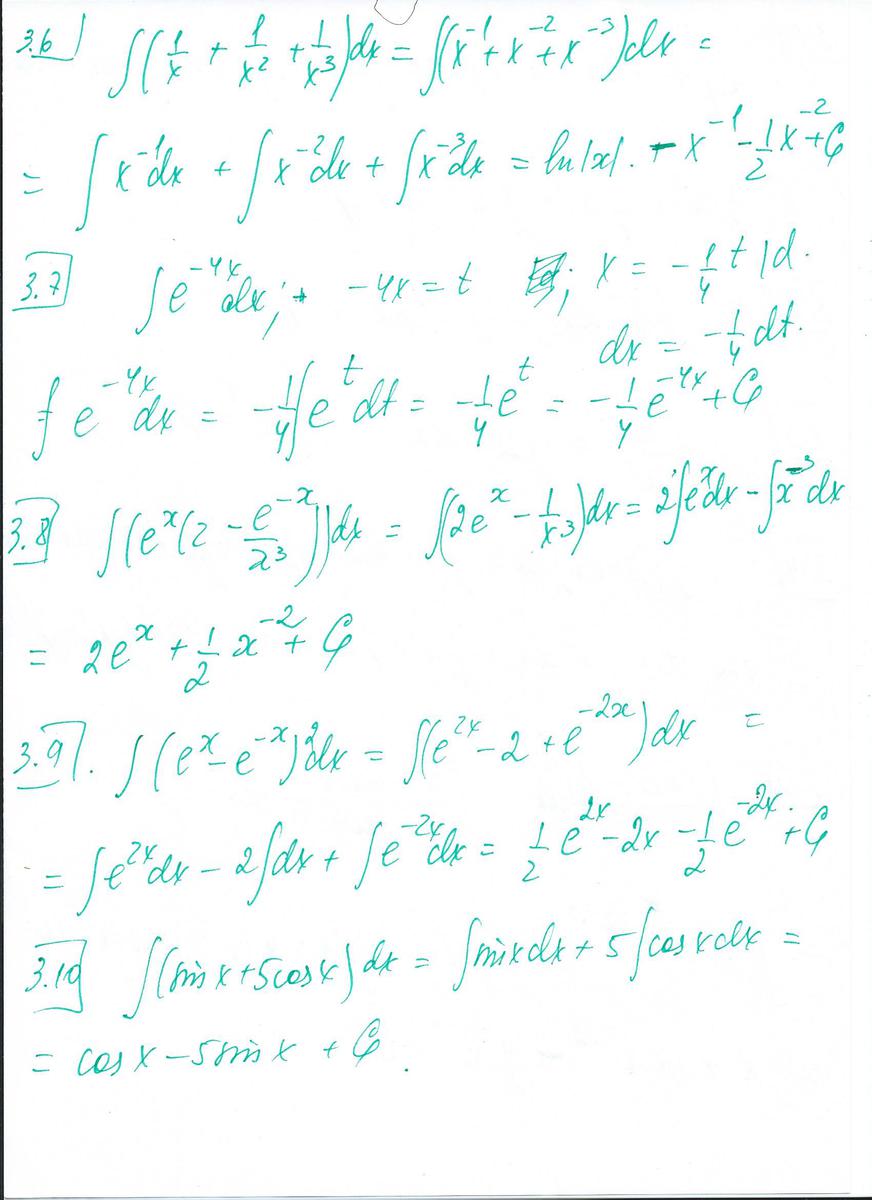 3.6 ∫(1/x + 1/x² + 1/x³)dx = ∫(x⁻¹ + x⁻² + x⁻³)dx =
= ∫x⁻¹dx + ∫x⁻²dx + ∫x⁻³dx = ln|x|. - x⁻¹ - 1/2 x⁻² + C
3.7 ∫e^(-4x)dx; -4x = t ; x = -1/4 t |d.
dx = -1/4 dt.
∫e^(-4x)dx = -1/4 ∫e^t dt = -1/4 e^t = -1/4 e^(-4x) + C
3.8 ∫(e^x(2 - e^(-x)/x³))dx = ∫(2e^x - 1/x³)dx = 2∫e^x dx - ∫x⁻³dx
= 2e^x + 1/2 x⁻² + C
3.9. ∫(e^x - e^(-x))²dx = ∫(e^(2x) - 2 + e^(-2x))dx =
= ∫e^(2x)dx - 2∫dx + ∫e^(-2x)dx = 1/2 e^(2x) - 2x - 1/2 e^(-2x) + C
3.10 ∫(sin x + 5cos x)dx = ∫sin x dx + 5∫cos x dx =
= cos x - 5 sin x + C.